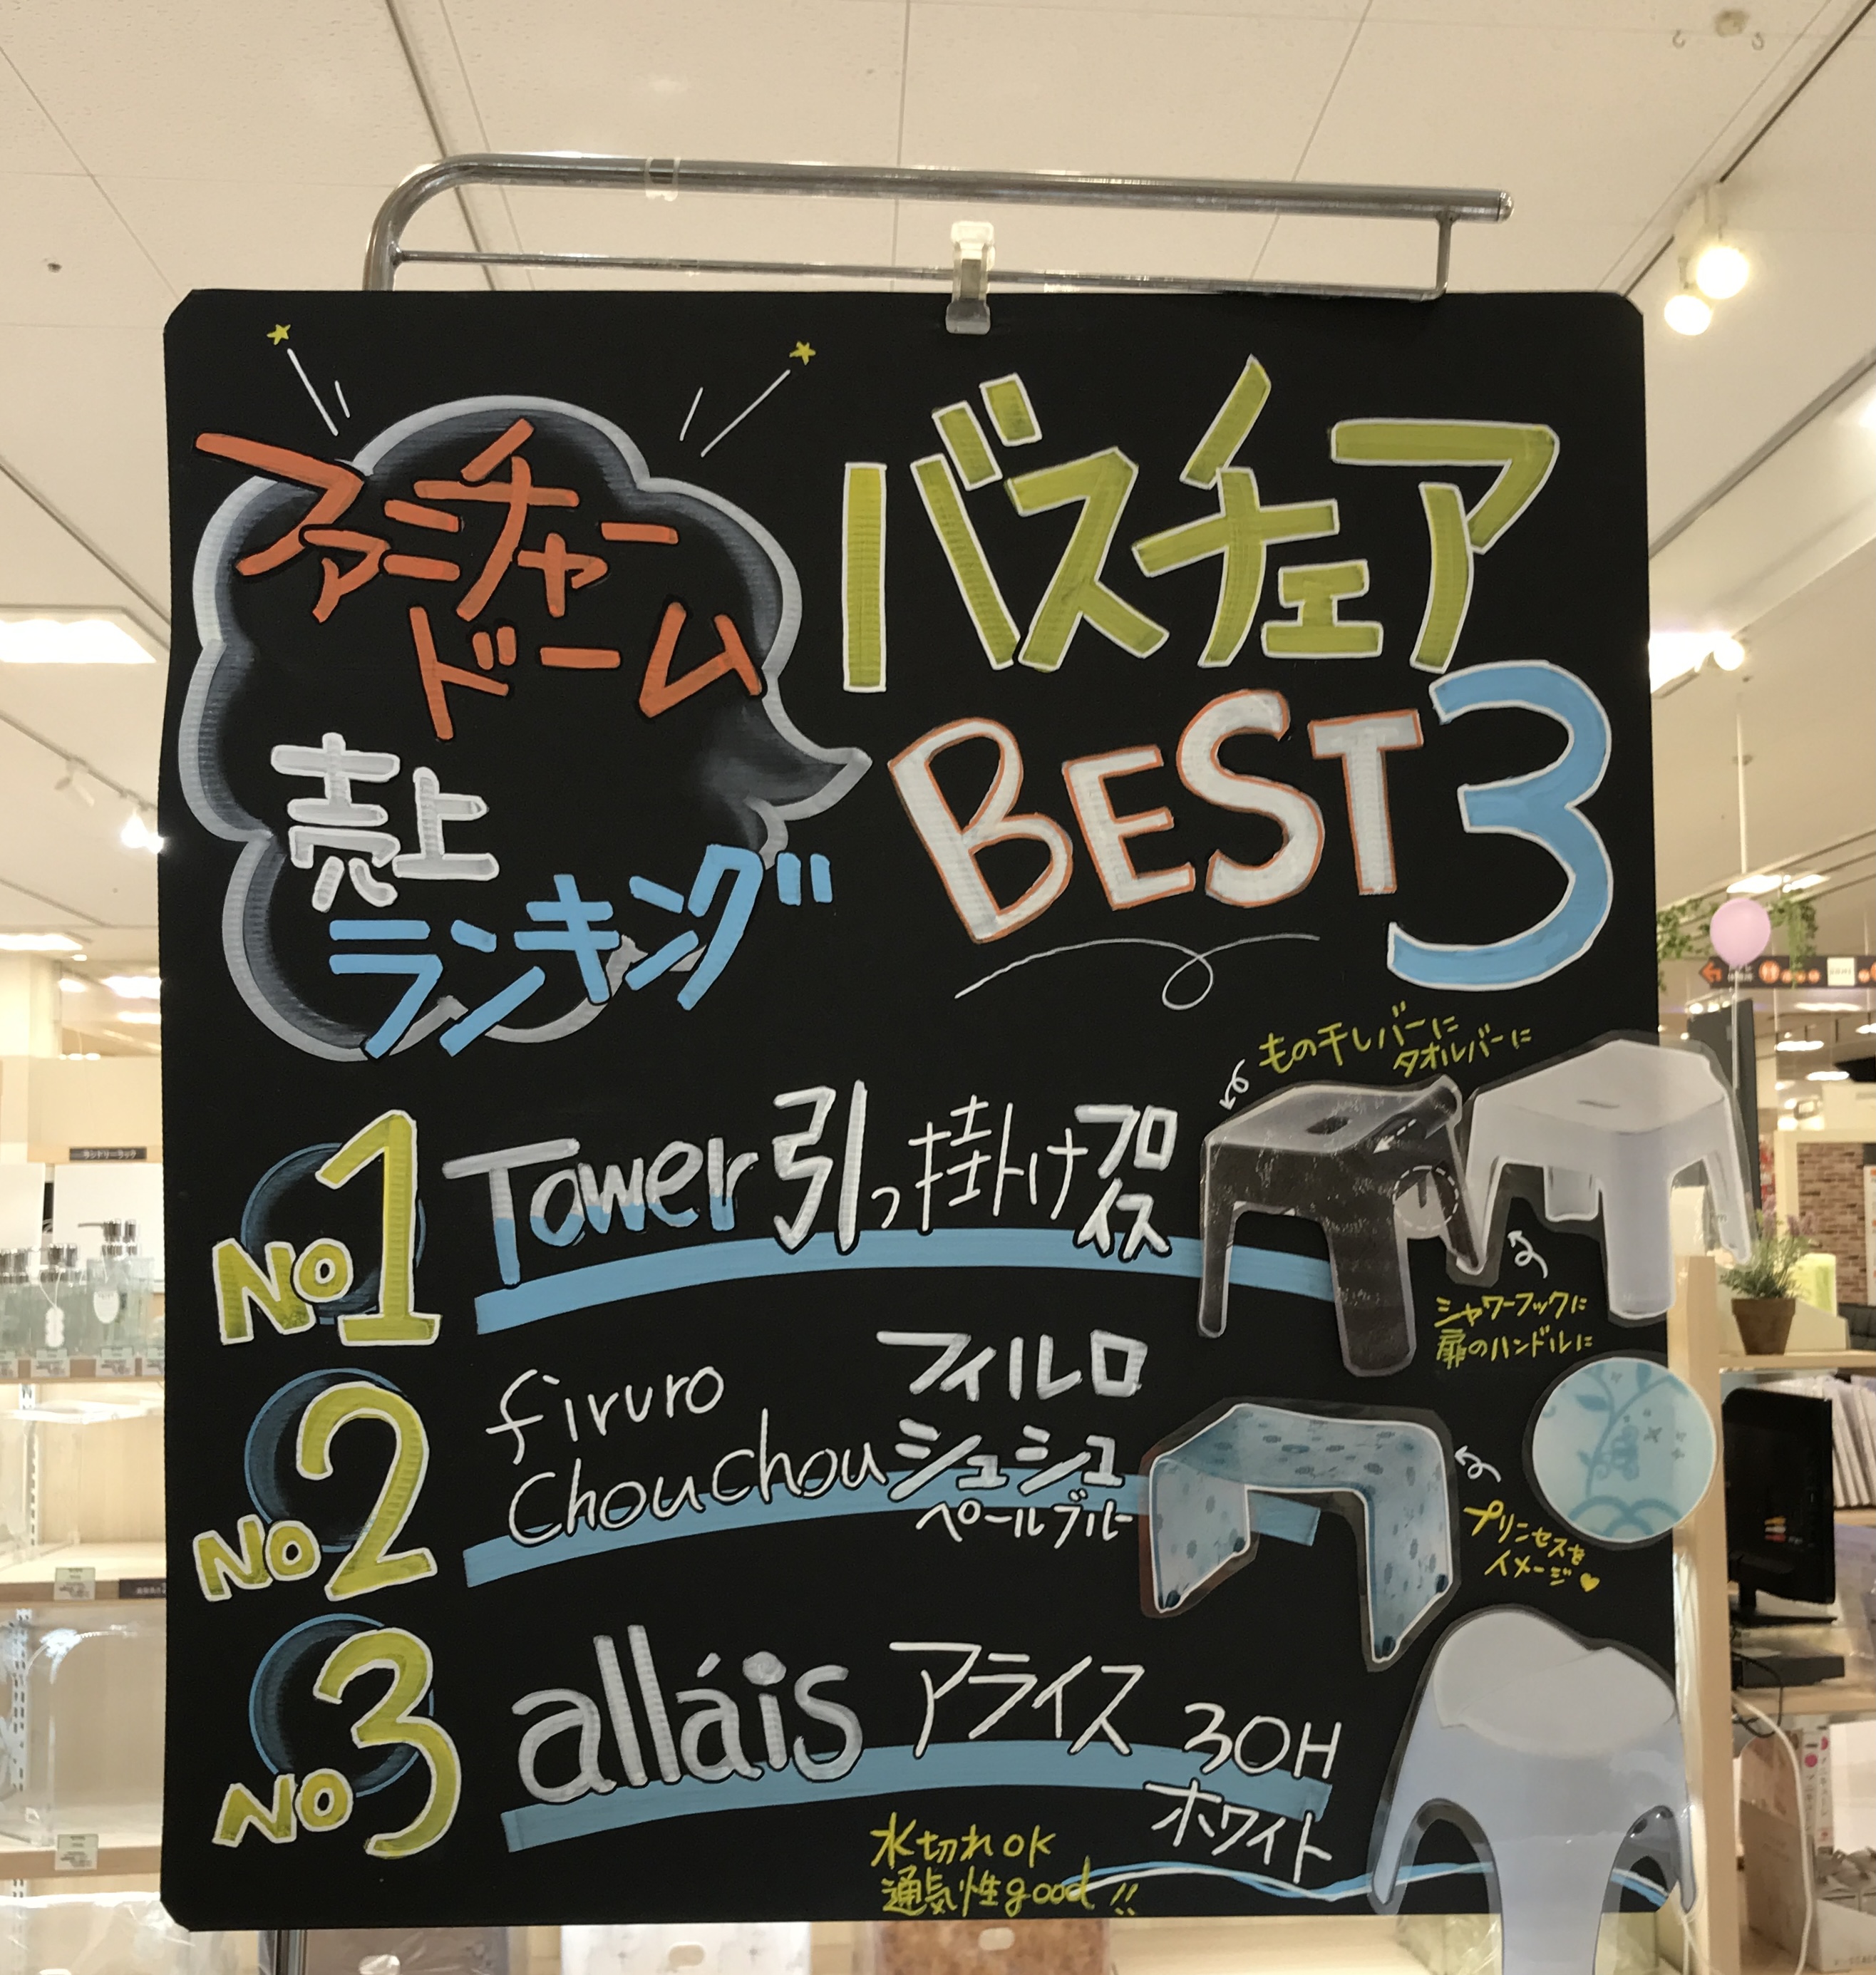 ファニチャー
ドーム
売上
ランキング
バスチェア
BEST3
No1
Tower引っ掛けフロ
イス
もの干しバーに
タオルバーに
シャワーフックに
扉のハンドルに
No2
firuro
chouchou
フィルロ
シュシュ
ペールブルー
プリンセスを
イメージ♥
No3
alláis アライス 30H
ホワイト
水切れOK
通気性good!!
ランドリーラック